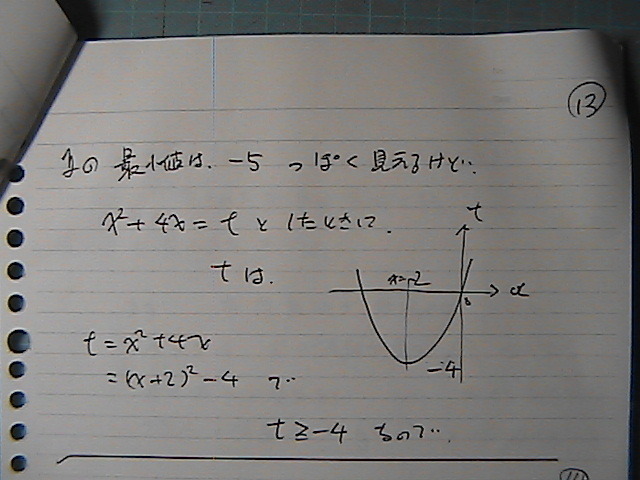 13
yの 最小値は、-5 っぽく見えるけど..
x²+4x=t としたときに、
tは、
t
x=-2
x
0
-4
t=x²+4x
=(x+2)²-4 で..
t≥-4 なので..